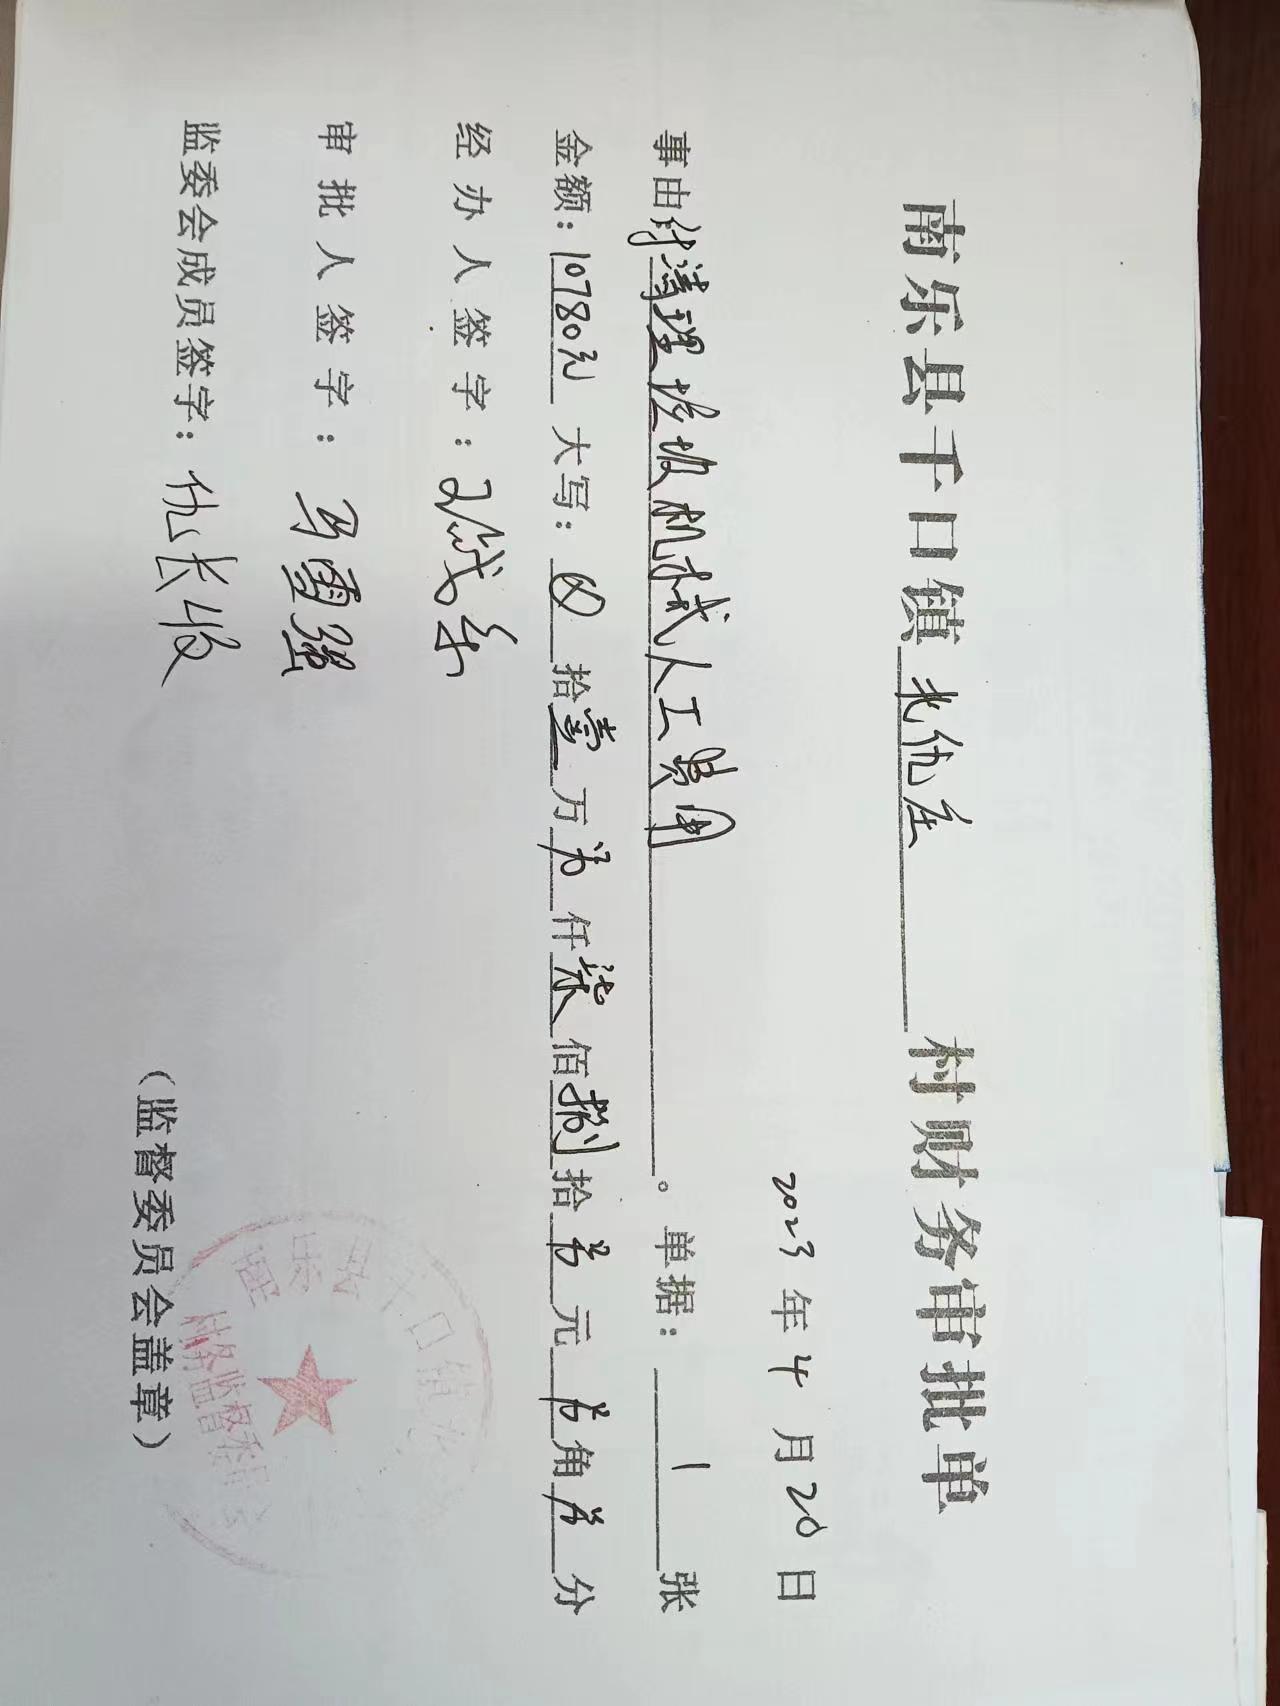 南乐县千口镇北仇庄村财务审批单
2023年4月20日
事由付清理垃圾机械人工费用。单据：1张
金额：10780元 大写：⊗拾壹万零仟柒佰捌拾零元零角零分
经办人签字：
审批人签字：马雪强
监委会成员签字：仇长收
（监督委员会盖章）
南乐县千口镇
村务监督委员会